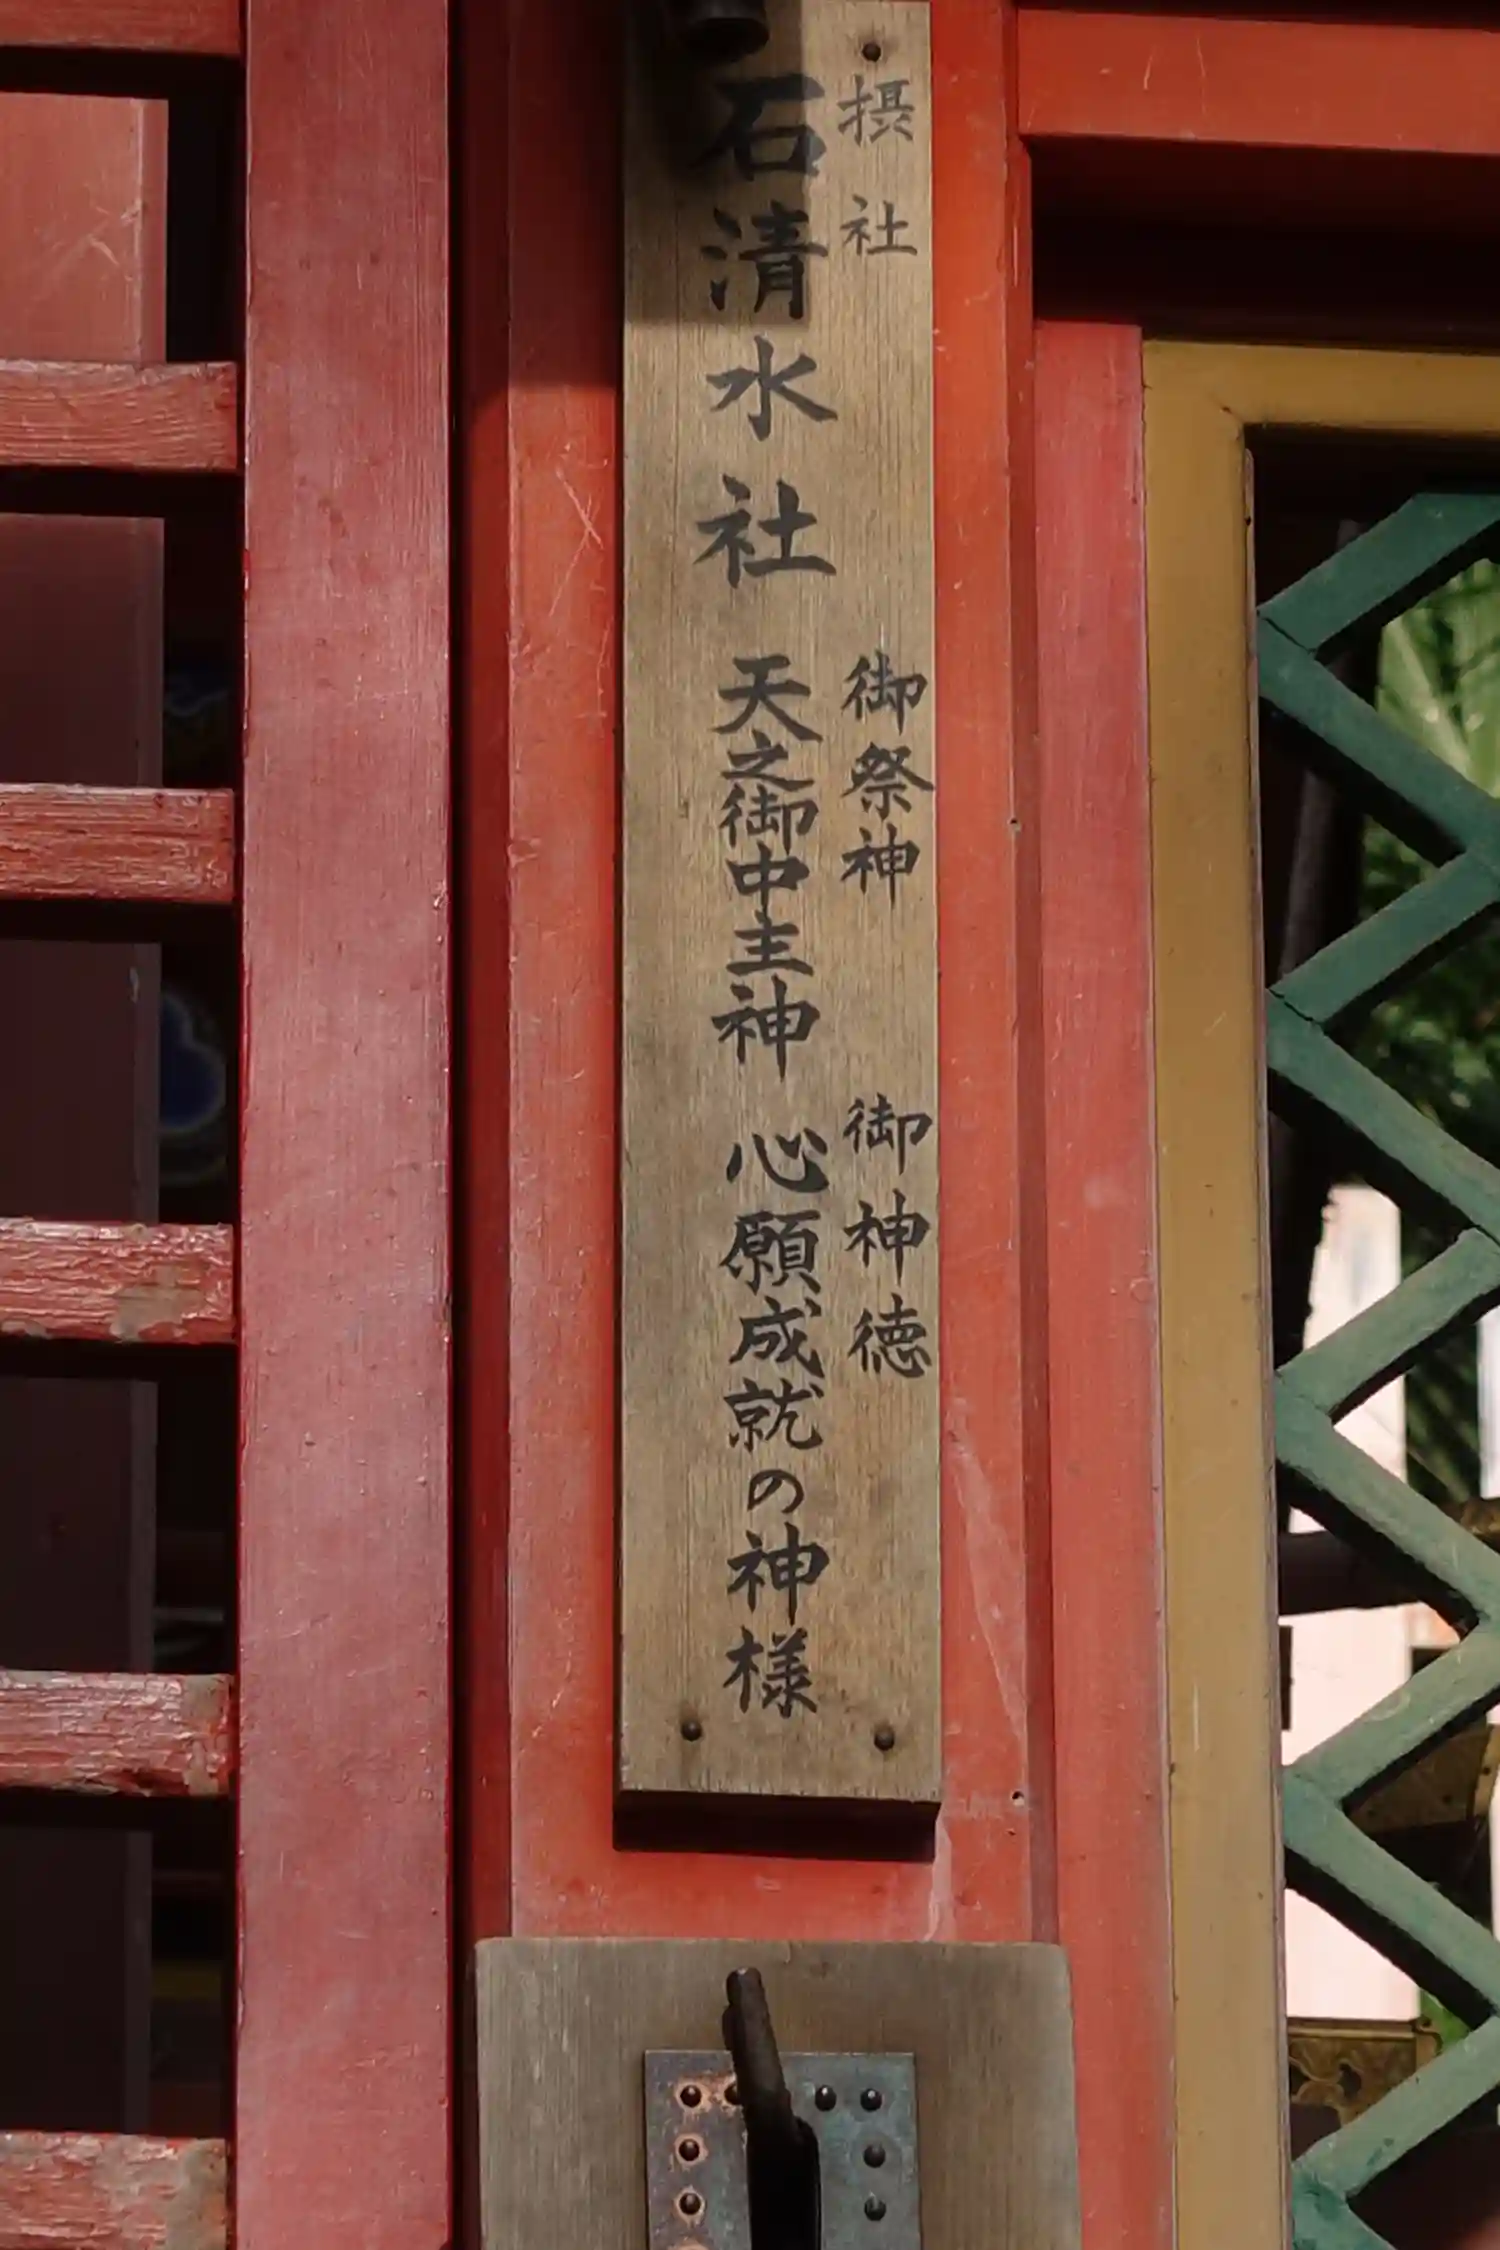 摂社
石清水社
御祭神
天之御中主神
御神徳
心願成就の神様